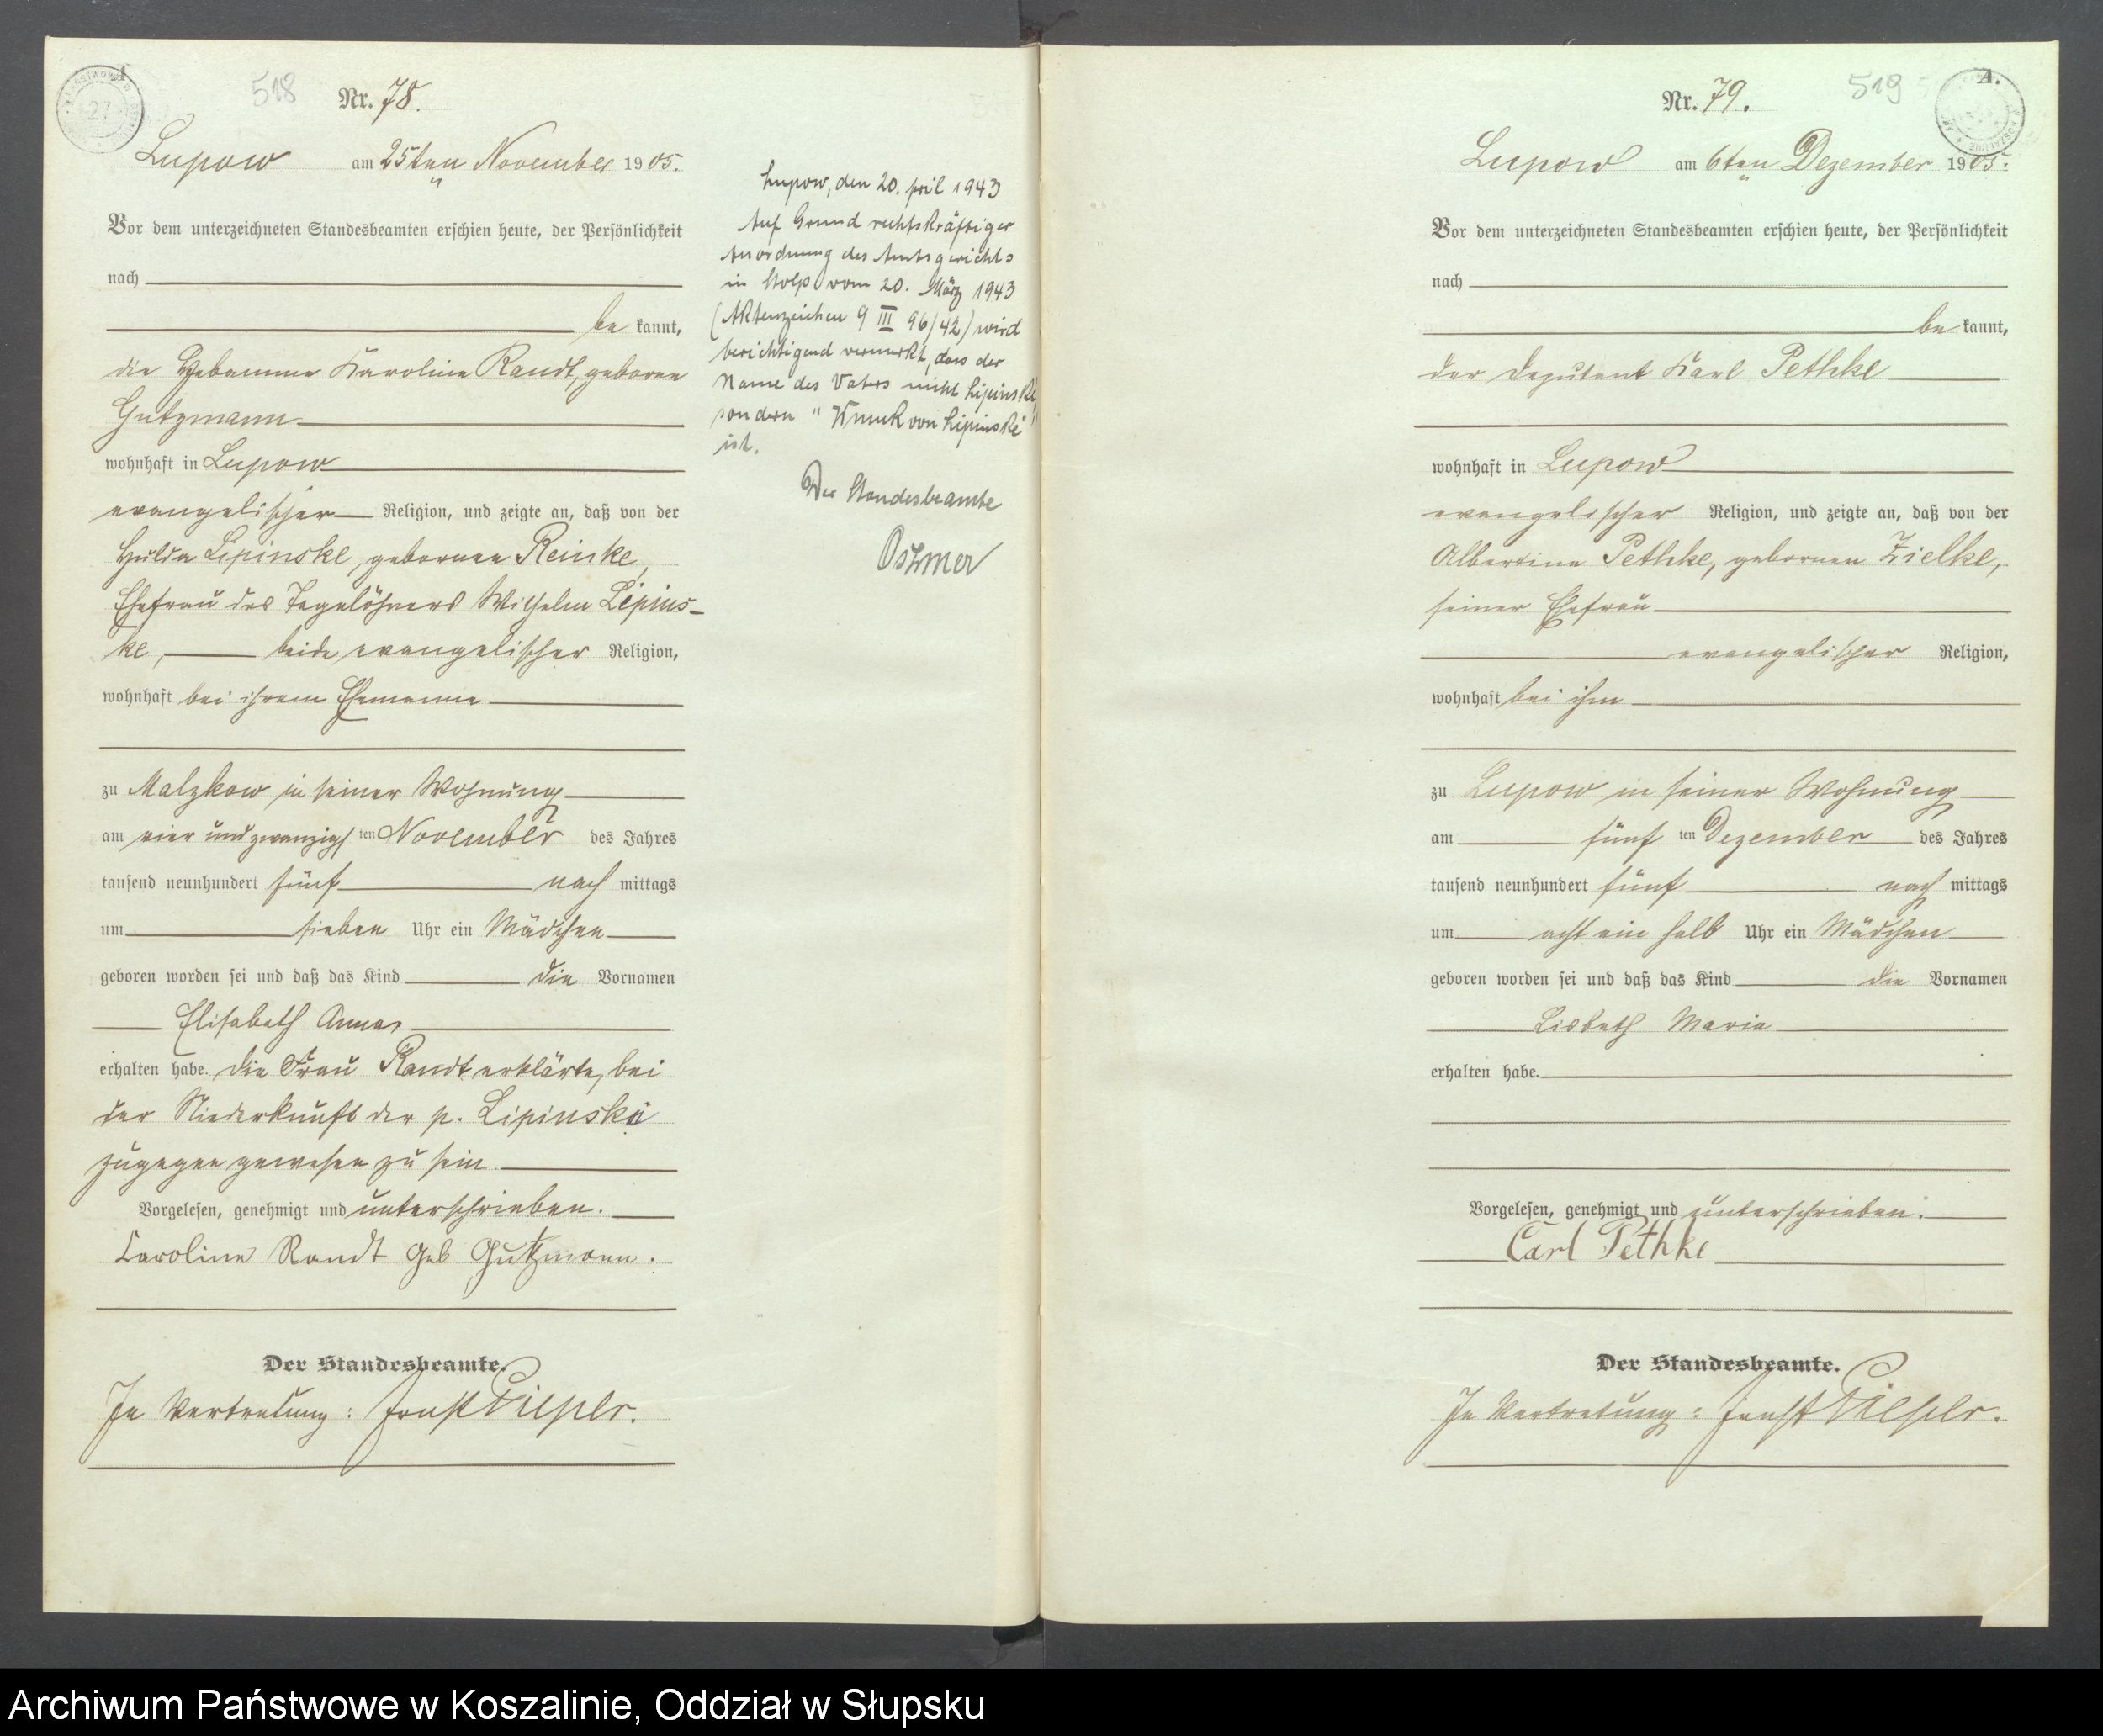 A.
518
Nr. 78.
Lupow am 25ten November 1905.
Vor dem unterzeichneten Standesbeamten erschien heute, der Persönlichkeit
nach
be kannt,
die Hebamme Karoline Randt, geborene
Gutzmann
wohnhaft in Lupow
evangelischer Religion, und zeigte an, daß von der
Hulda Lipinske, geborenen Reinke,
Ehefrau des Tagelöhners Wilhelm Lipins-
ke, beide evangelischer Religion,
wohnhaft bei ihrem Ehemanne
zu Malzkow in seiner Wohnung
am vier und zwanzigsten November des Jahres
tausend neunhundert fünf nach mittags
um sieben Uhr ein Mädchen
geboren worden sei und daß das Kind die Vornamen
Elisabeth Anna
erhalten habe. Die Frau Randt erklärte, bei
der Niederkunft der p. Lipinski
zugegen gewesen zu sein.
Vorgelesen, genehmigt und unterschrieben.
Caroline Randt geb Gutzmann.
Der Standesbeamte.
In Vertretung: Ernst
Lupow, den 20. pril 1943
Auf Grund rechtskräftiger
Anordnung des Amtsgerichts
in Stolp vom 20. März 1943
(Aktenzeichen 9 III 96/42) wird
berichtigend vermerkt, dass der
Name des Vaters nicht Lipinske
sondern "Wnuk von Lipinski"
ist.
Der Standesbeamte
A.
519
Nr. 79.
Lupow am 6ten Dezember 1905.
Vor dem unterzeichneten Standesbeamten erschien heute, der Persönlichkeit
nach
be kannt,
der Deputant Karl Pethke
wohnhaft in Lupow
evangelischer Religion, und zeigte an, daß von der
Albertine Pethke, geborenen Zielke,
seiner Ehefrau
evangelischer Religion,
wohnhaft bei ihm
zu Lupow in seiner Wohnung
am fünf ten Dezember des Jahres
tausend neunhundert fünf nach mittags
um acht ein halb Uhr ein Mädchen
geboren worden sei und daß das Kind die Vornamen
Lisbeth Maria
erhalten habe.
Vorgelesen, genehmigt und unterschrieben.
Carl Pethke
Der Standesbeamte.
In Vertretung: Ernst
Archiwum Państwowe w Koszalinie, Oddział w Słupsku